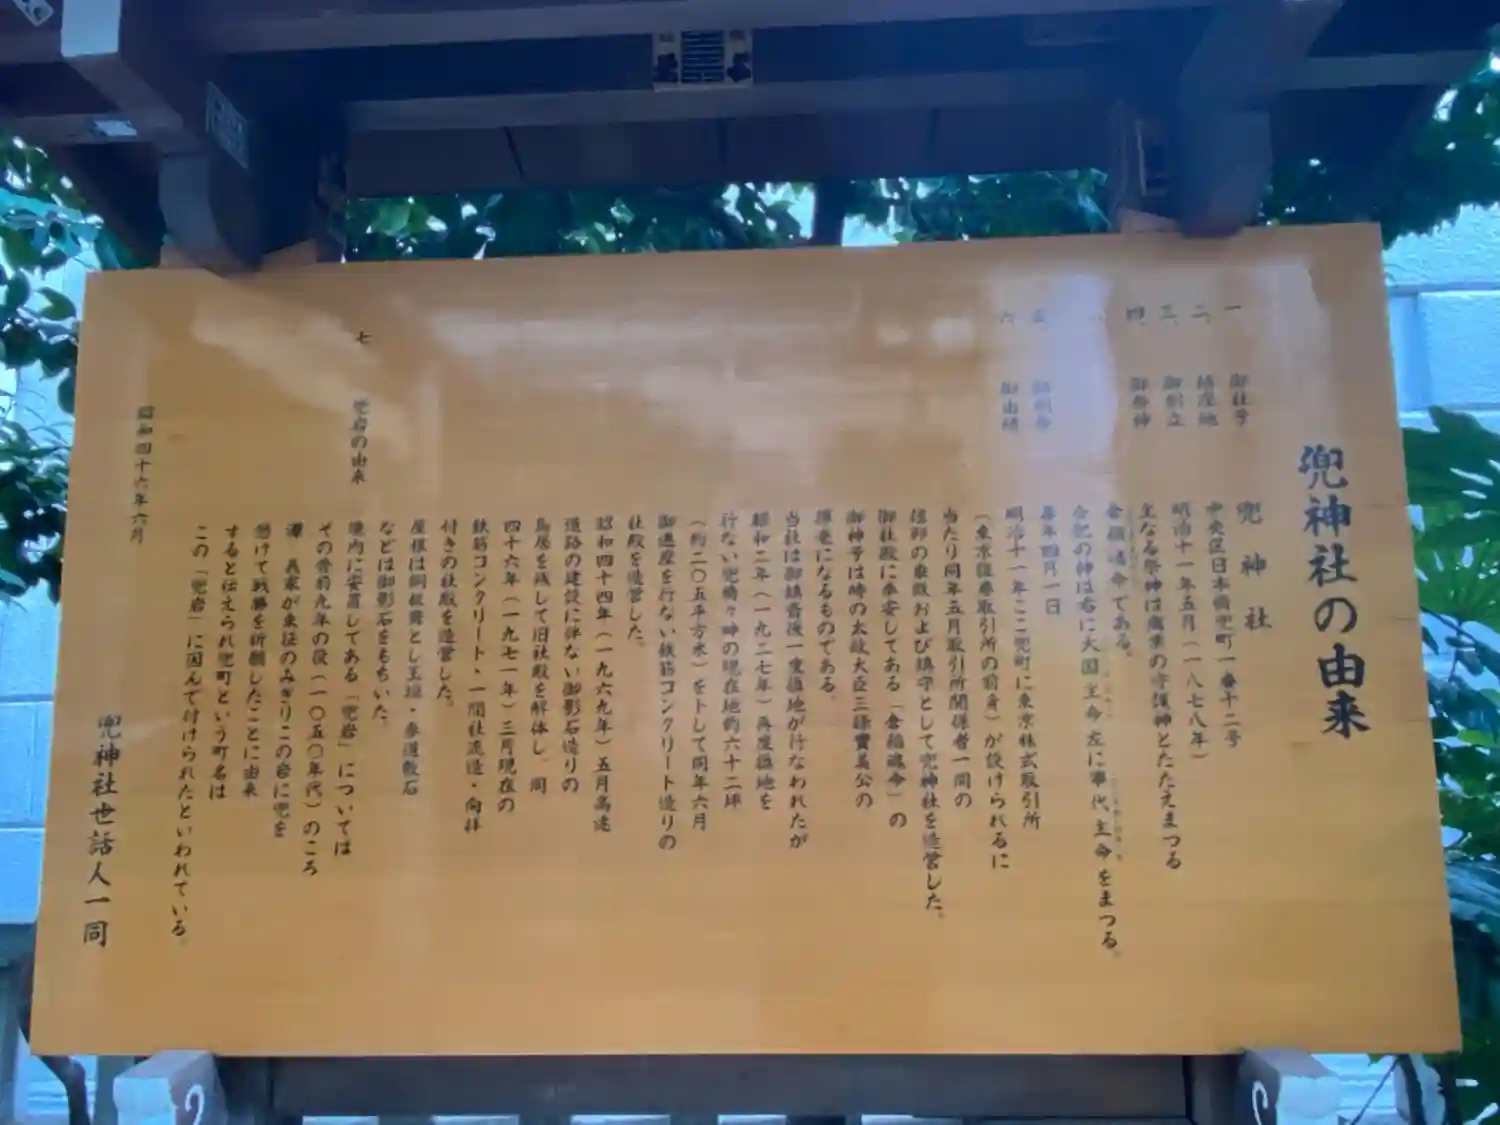 兜神社の由来
一、 御社号 兜神社
二、 鎮座地 中央区日本橋兜町一番十二号
三、 御創立 明治十一年五月(一八七八年)
四、 御祭神 主なる祭神は商業の守護神とたたえまつる
倉稲魂命である。
合祀の神は右に大国主命左に事代主命をまつる。
五、 御例祭 毎年四月一日
六、 御由緒 明治十一年ここ兜町に東京株式取引所
(東京証券取引所の前身)が設けられるに
当たり同年五月取引所関係者一同の
信仰の象徴および鎮守として兜神社を造営した。
御社殿に奉安してある「倉稲魂命」の
御神号は時の太政大臣三條實美公の
揮毫になるものである。
当社は御鎮斎後一度換地が行なわれたが
昭和二年(一九二七年)再度換地を
行ない兜橋々畔の現在地約六十二坪
(約二〇五平方米)を卜して同年六月
御遷座を行ない鉄筋コンクリート造りの
社殿を造営した。
昭和四十四年(一九六九年)五月高速
道路の建設に伴ない御影石造りの
鳥居を残して旧社殿を解体し、同
四十六年(一九七一年)三月現在の
鉄筋コンクリート・一間社流造・向拝
付きの社殿を造営した。
屋根は銅板葺とし玉垣・参道敷石
などは御影石をもちいた。
七 兜岩の由来 境内に安置してある「兜岩」については
その昔前九年の役(一〇五〇年代)のころ
源 義家が東征のみぎりこの岩に兜を
懸けて戦勝を祈願したことに由来
すると伝えられ兜町という町名は
この「兜岩」に因んで付けられたといわれている。
昭和四十六年六月
兜神社世話人一同